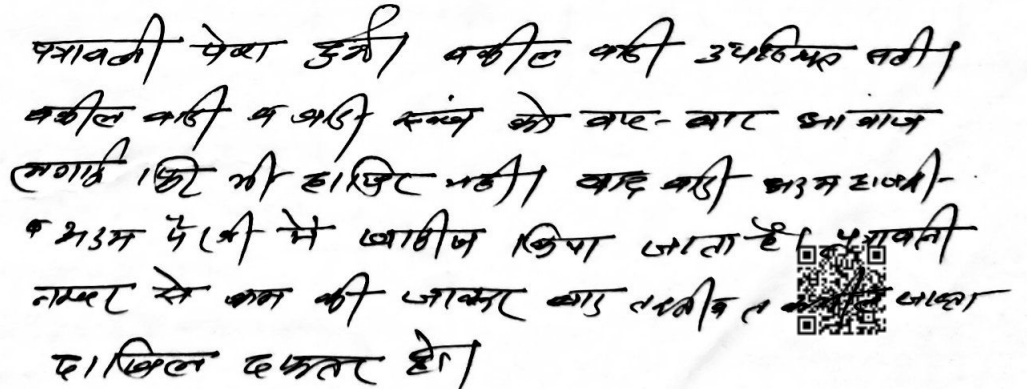 पत्रावली पेश हुई। वकील वादी उपस्थित नही।
वकील वादी व वादी स्वंय को बार-बार आवाज
लगाई फिर भी हाजिर नही। वाद वादी अदम हाजरी-
व अदम पैरवी मे खारीज किया जाता है। पत्रावली
नम्बर से कम की जाकर बाद जाकर
दाखिल दफतर हो।